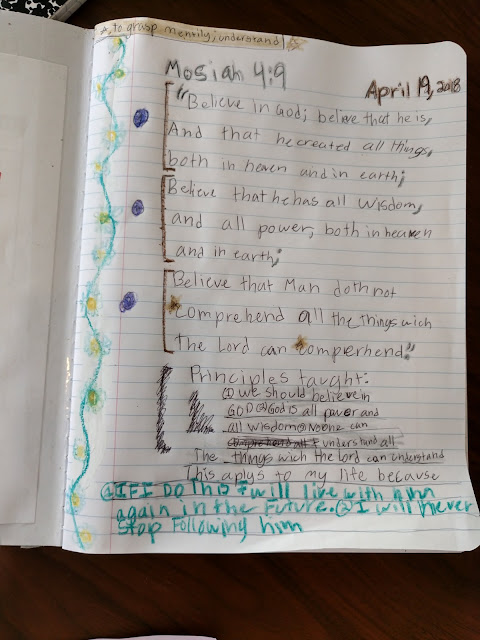 *, to grasp mentily; understand
Mosiah 4:9
April 19, 2018
"Believe in God; believe that he is,
And that he created all things,
both in heven and in earth;
Believe that he has all wisdom,
and all power, both in heaven
and in earth;
Believe that Man doth not
*comprehend all the things wich
the Lord can *compierhend."
Principles taught:
① we should believe in
GOD ② God is all power and
all wisdom ③ No one can
comprehend all understand all
The things wich the Lord can understand
This aplys to my life because
① IF I DO This I will live with him
again in the Future. ② I will never
stop Following him